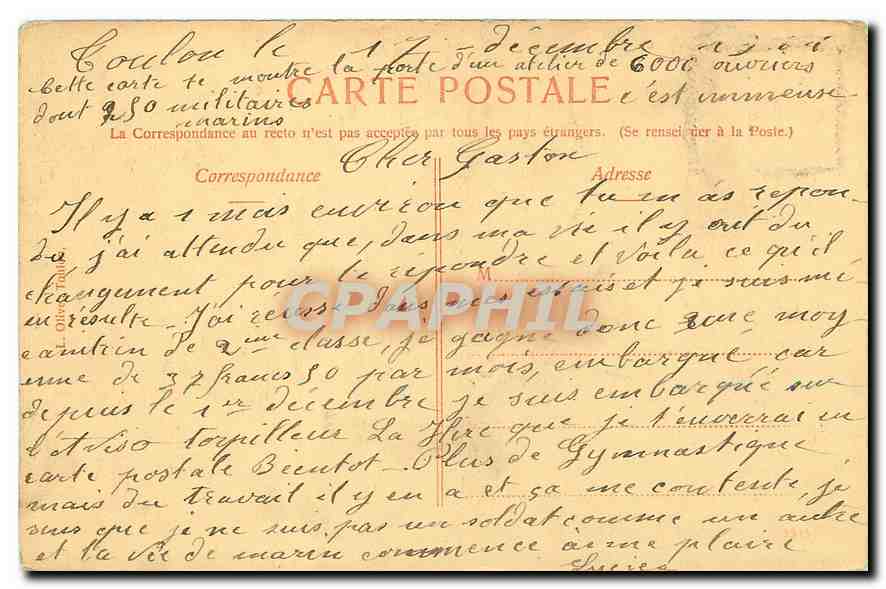 Toulon le 17 décembre
Cette carte te montre la porte d'un atelier de 6000 ouvriers
dont 250 militaires
marins
c'est immense
CARTE POSTALE
La Correspondance au recto n'est pas acceptée par tous les pays étrangers. (Se renseigner à la Poste.)
Cher Gaston
Correspondance
Adresse
Il y a 1 mois environ que tu m'as repon-
du, j'ai attendu que, dans ma vie il y eut du
changement pour te répondre et voila ce qu'il
M
en résulte - J'ai reussi dans mes essais et je suis mé-
canicien de 2me classe, je gagne donc une moy
enne de 37 francs 50 par mois, embarqué car
depuis le 1er décembre je suis embarqué sur
l'Aviso torpilleur La Hire que je t'enverrai en
carte postale Bientot - Plus de Gymnastique
mais du travail il y en a et ça me contente, je
vois que je ne suis pas un soldat comme un autre
et la vie de marin commence à me plaire
L. Oliver, Toulon.
CPAPHIL